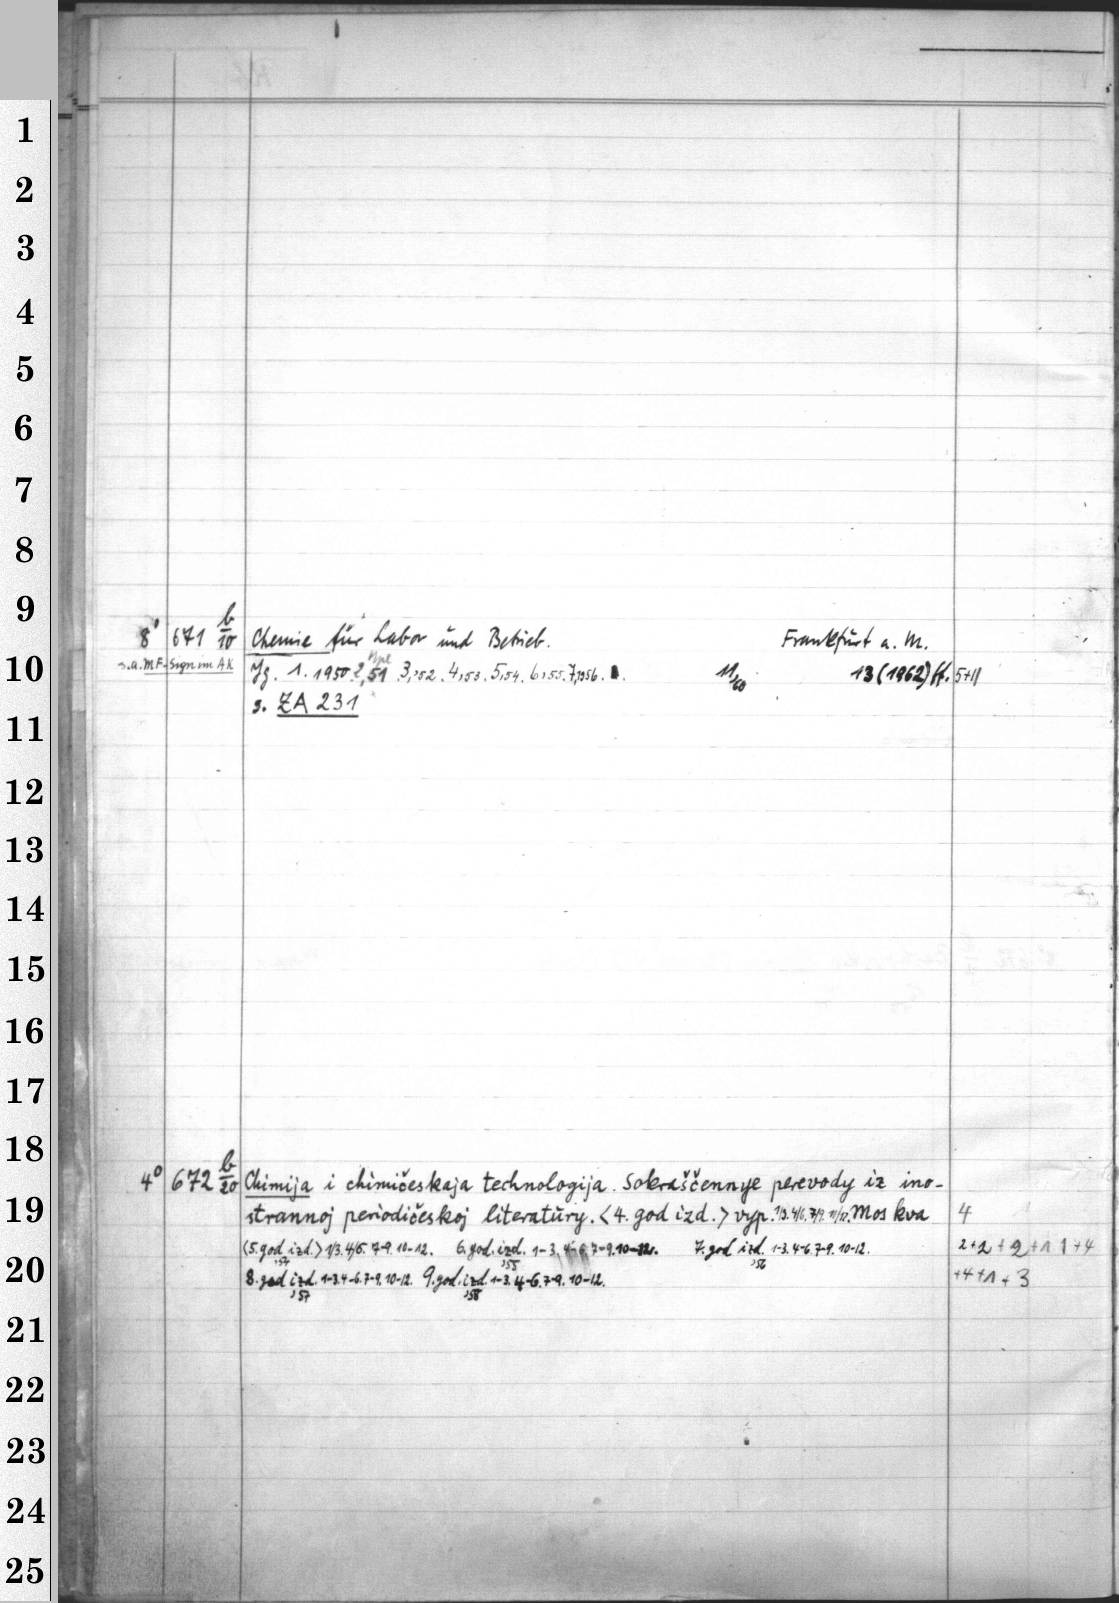 1
2
3
4
5
6
7
8
9
8° 671 b/10 Chemie für Labor und Betrieb. Frankfurt a. M.
10
s.a. MF-Sign im AK Jg. 1. 1950. 2,51 3,'52. 4,'53. 5,'54. 6,'55. 7,1956. 11/60 13 (1962) ff. 5+11
s. ZA 231
11
12
13
14
15
16
17
18
4° 672 b/20 Chimija i chimičeskaja technologija. Sokraščennye perevody iz ino-
19
strannoj periodičeskoj literatury. <4. god izd.> vyp. 1/3. 4/6. 7/9. 11/12. Moskva 4
<5. god izd.> 1/3. 4/6. 7-9. 10-12. 6. god. izd. 1-3. 4-6. 7-9. 10-12. 7. god izd. 1-3. 4-6. 7-9. 10-12. 2+2+2+1 1+4
,'54 ,'55 ,'56
20
8. god izd. 1-3. 4-6. 7-9. 10-12. 9. god. izd. 1-3. 4-6. 7-9. 10-12. +4+1+3
,'57 ,'58
21
22
23
24
25